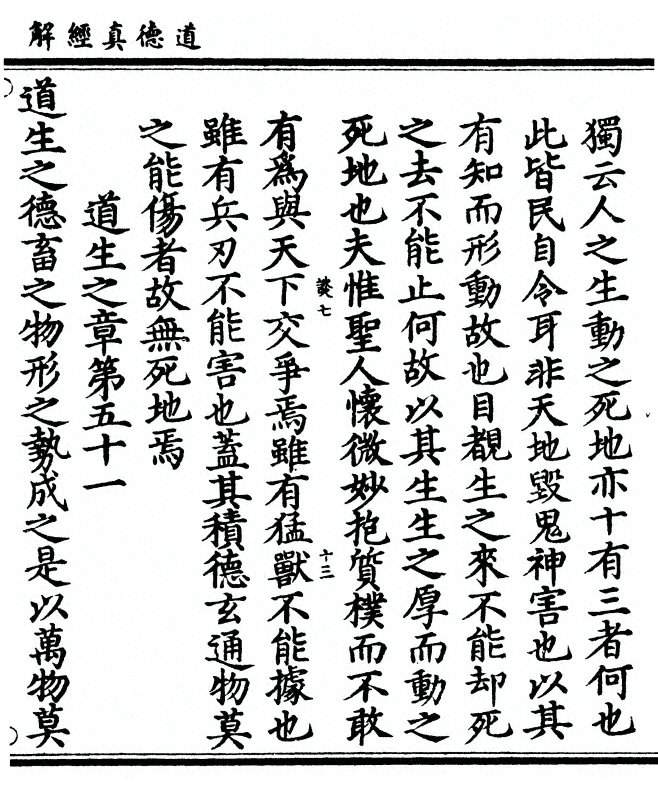 道德真經解
獨云人之生動之死地亦十有三者何也
此皆民自令耳非天地毀鬼神害也以其
有知而形動故也目覩生之來不能却死
之去不能止何故以其生生之厚而動之
死地也夫惟聖人懷微妙抱質樸而不敢
談七
十三
有爲與天下交爭焉雖有猛獸不能據也
雖有兵刃不能害也蓋其積德玄通物莫
之能傷者故無死地焉
道生之章第五十一
道生之德畜之物形之勢成之是以萬物莫